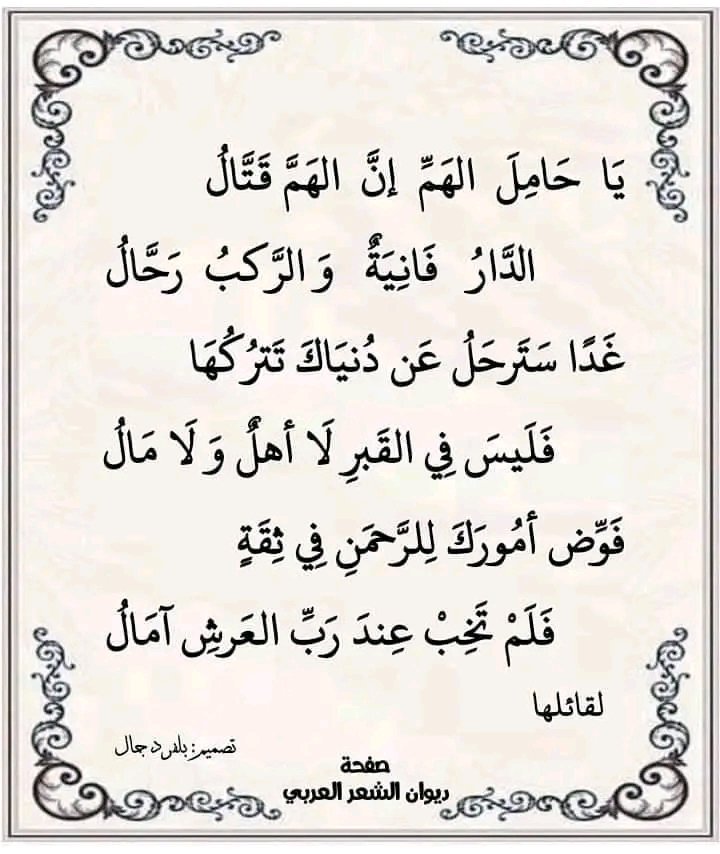 يَا حَامِلَ الهَمِّ إنَّ الهَمَّ قَتَّالُ
الدَّارُ فَانِيَةٌ وَالرَّكبُ رَحَّالُ
غَدًا سَتَرحَلُ عَن دُنيَاكَ تَترُكُهَا
فَلَيسَ فِي القَبرِ لَا أهلٌ وَلَا مَالُ
فَوِّض أمُورَكَ لِلرَّحمَنِ فِي ثِقَةٍ
فَلَمْ تَخِبْ عِندَ رَبِّ العَرشِ آمَالُ
لقائلها
تصميم:
صفحة
ديوان الشعر العربي